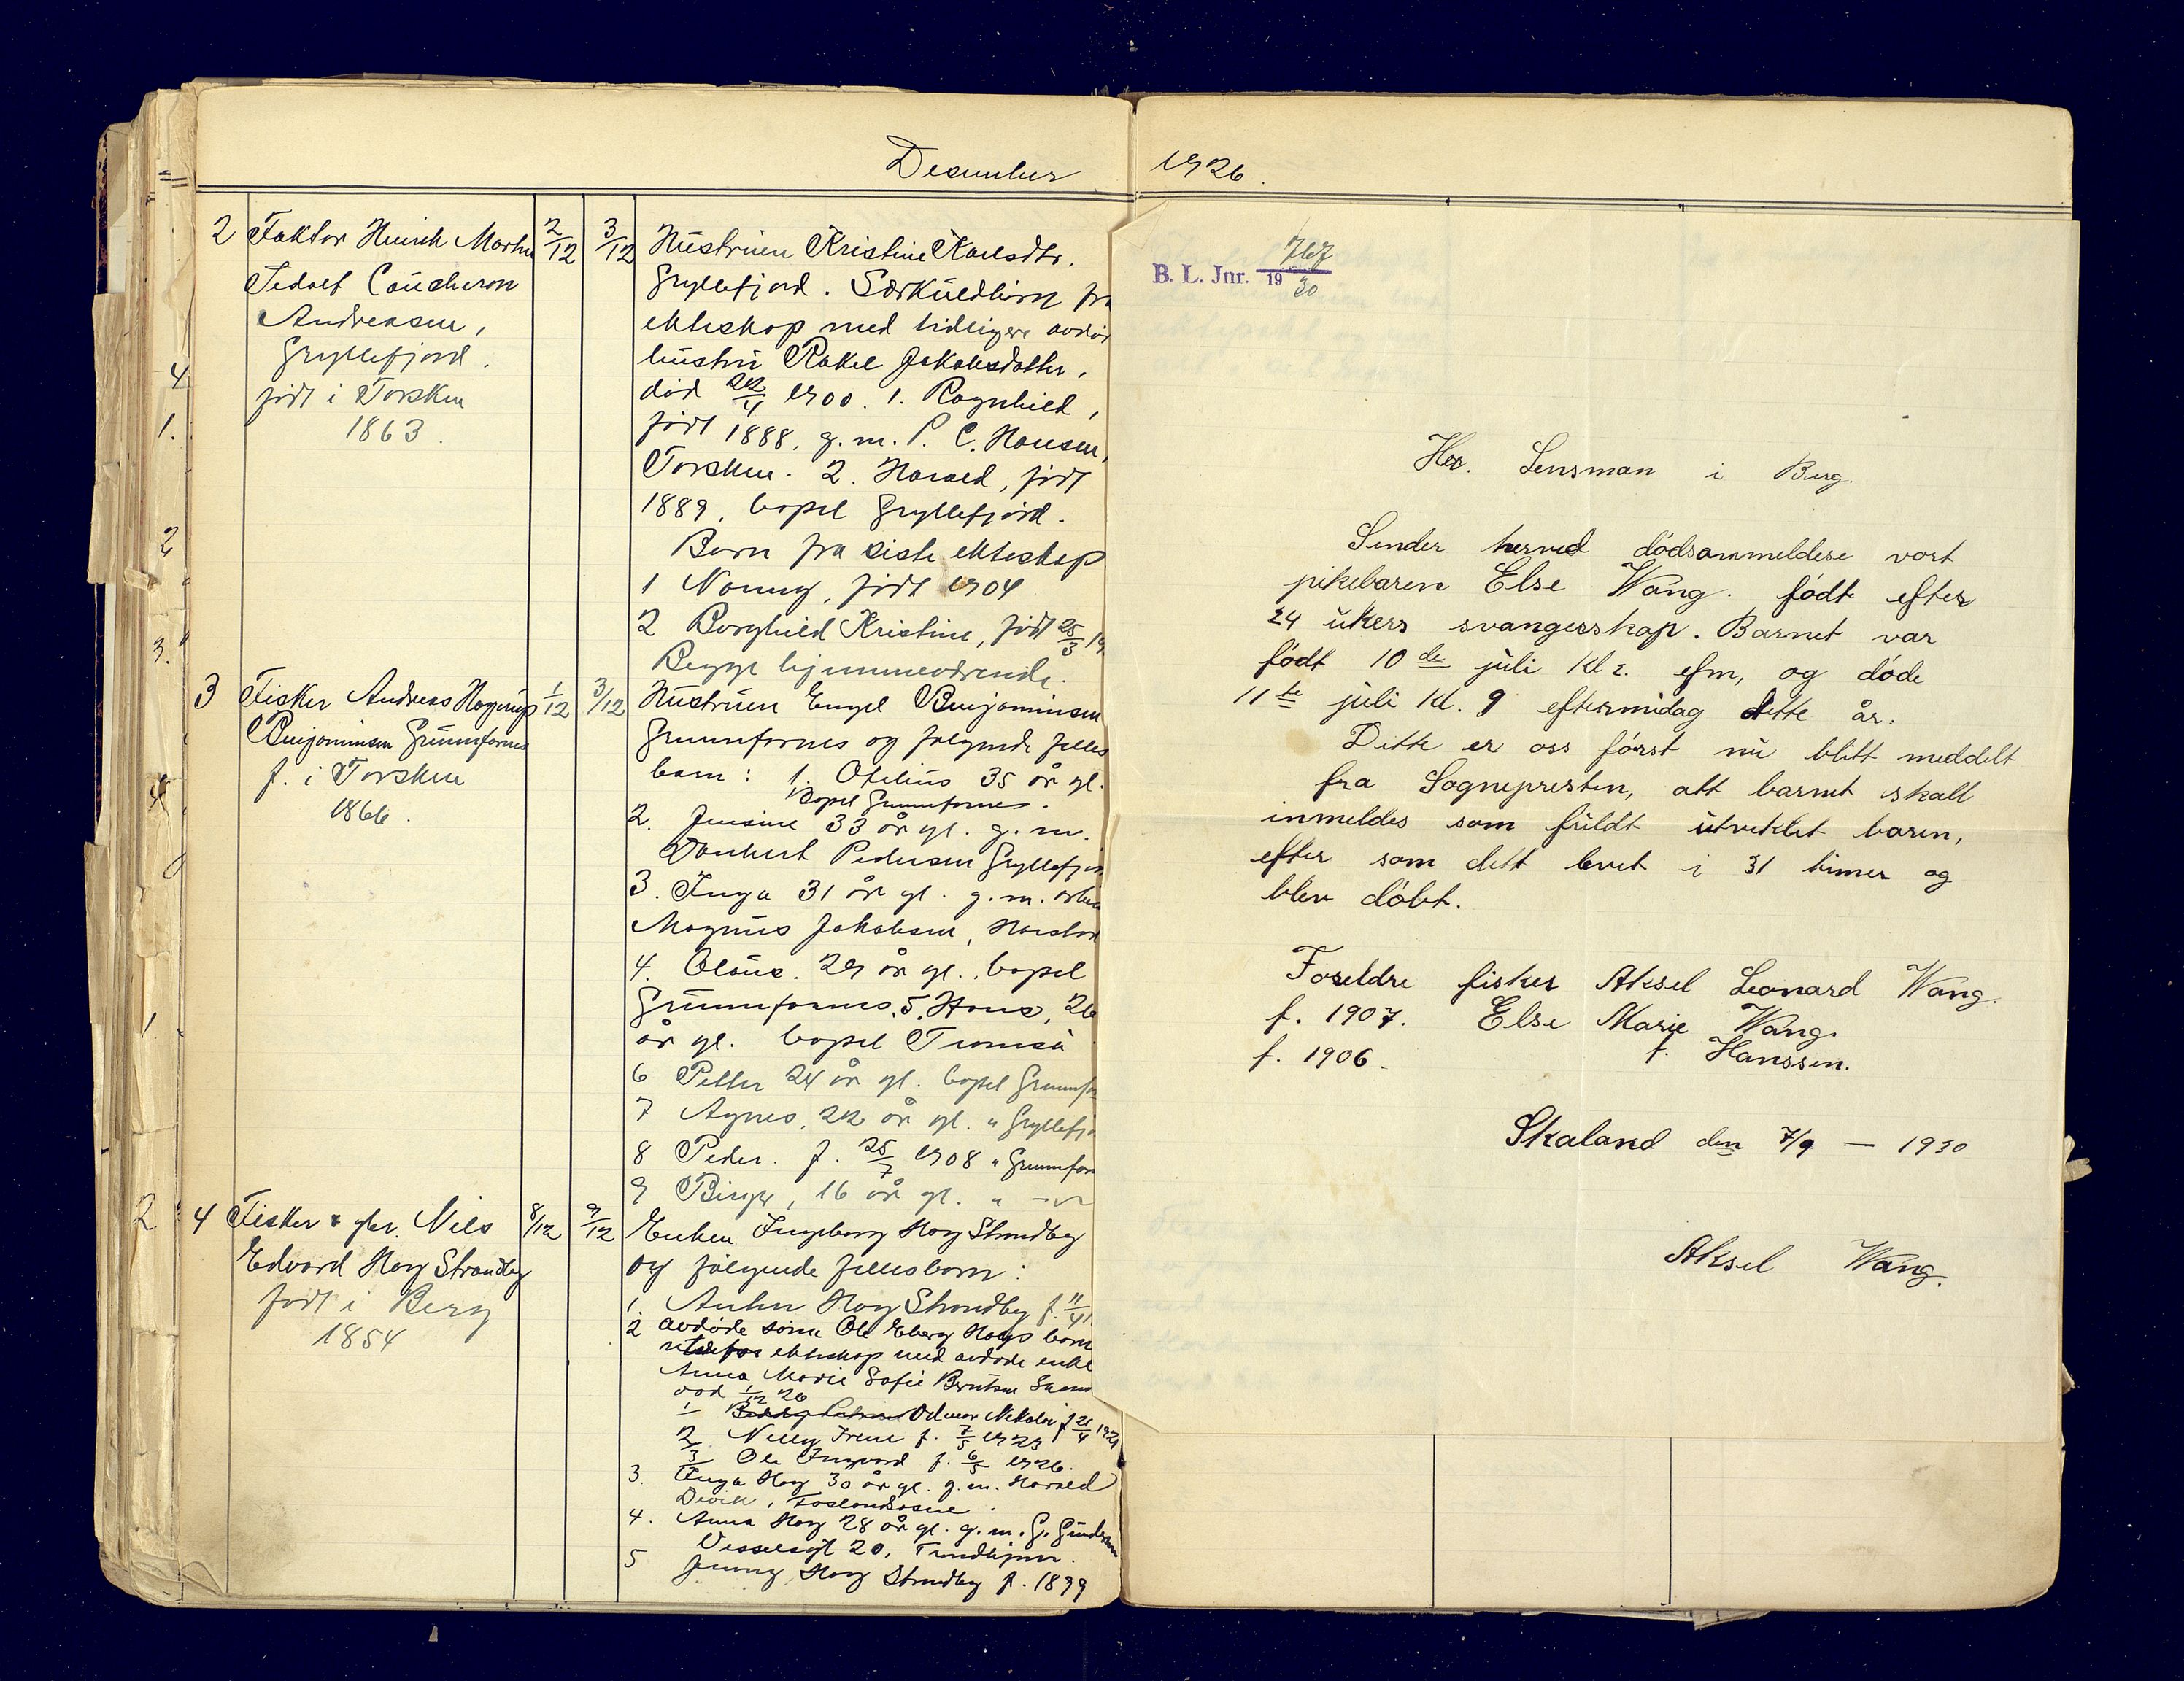 Desember 1926.
2 Faktor Hinrik Martin 2/12 3/12 Hustruen Kristine Karlsdtr.
Tedolf Coucheron Gryllefjord. Særkuldbarn fra
Andreasen, ekteskap med tidligere avdød
Gryllefjord. hustru Rakel Jakobsdatter,
født i Torsken død 22/4 1900. 1. Ragnhild,
1863. født 1888, g. m. P. C. Hansen,
Torsken. 2. Harald, født
1889, bopel Gryllefjord.
Barn fra siste ekteskap
1 Nanny, født 1904
2 Borghild Kristine, født 25/3 19
Begge hjemmeværende.
3 Fisker Andreas Hagerup 1/12 3/12 Hustruen Engel Benjaminsen
Benjaminsen Grunnfarnes Grunnfarnes og følgende felles
f. i Torsken barn: 1. Otelius 35 år gl.
1866. Bopel Grunnfarnes.
2. Jensine 33 år gl. g. m.
Pedersen Gryllefjor
3. Inga 31 år gl. g. m.
Magnus Jakobsen, Harstad
4. Olaus. 29 år gl. bopel
Grunnfarnes. 5. Hans, 26
år gl. bopel Tromsø
6 Petter 24 år gl. bopel Grunnfar
7 Agnes, 22 år gl. " Gryllefjo
8 Peder. f. 25/7 1908 " Grunnfar
9 Birger, 16 år gl. " — " —
2 4 Fisker & gbr. Nils 8/12 9/12 Enken Ingeborg Hog Strandby
Edvard Hog Strandby og følgende fellesbarn:
født i Berg 1. Anton Hog Strandby f. 11/4
1854 2 avdøde sønn Ole Eberg Hogs barn
ekteskap med avdøde enke
Anna Marie Sofie Berntsen
død 1/12 26
1 Odmar Nikolai f 21/4 1921
2 Nelly Irene f. 7/5 1923
3 Ole Ingvard f. 6/5 1926.
3. Inga Hog 30 år gl. g. m. Harald
Devik, Foslandsosen
4. Anna Hog 28 år gl. g. m. G. Gundersen
Vesselsgt 20, Trondhjem.
5 Jenny Hog Strandby f. 1899
B. L. Jnr. 767/1930
Her. Lensman i Berg.
Sender herved dødsammeldese vort
pikebaren Else Wang. født efter
24 ukers svangerskap. Barnet var
født 10de juli kl 2. efm, og døde
11te juli kl. 9 eftermidag dette år.
Dette er oss først nu blitt meddelt
fra Sognepresten, att barnet skall
inmeldes som fuldt utviklet baren,
efter som dett levet i 31 timer og
blev døbt.
Foreldre fisker Aksel Leonard Wang.
f. 1907. Else Marie Wang.
f. 1906. f. Hanssen.
Skaland den 7/9 — 1930
Aksel Wang.